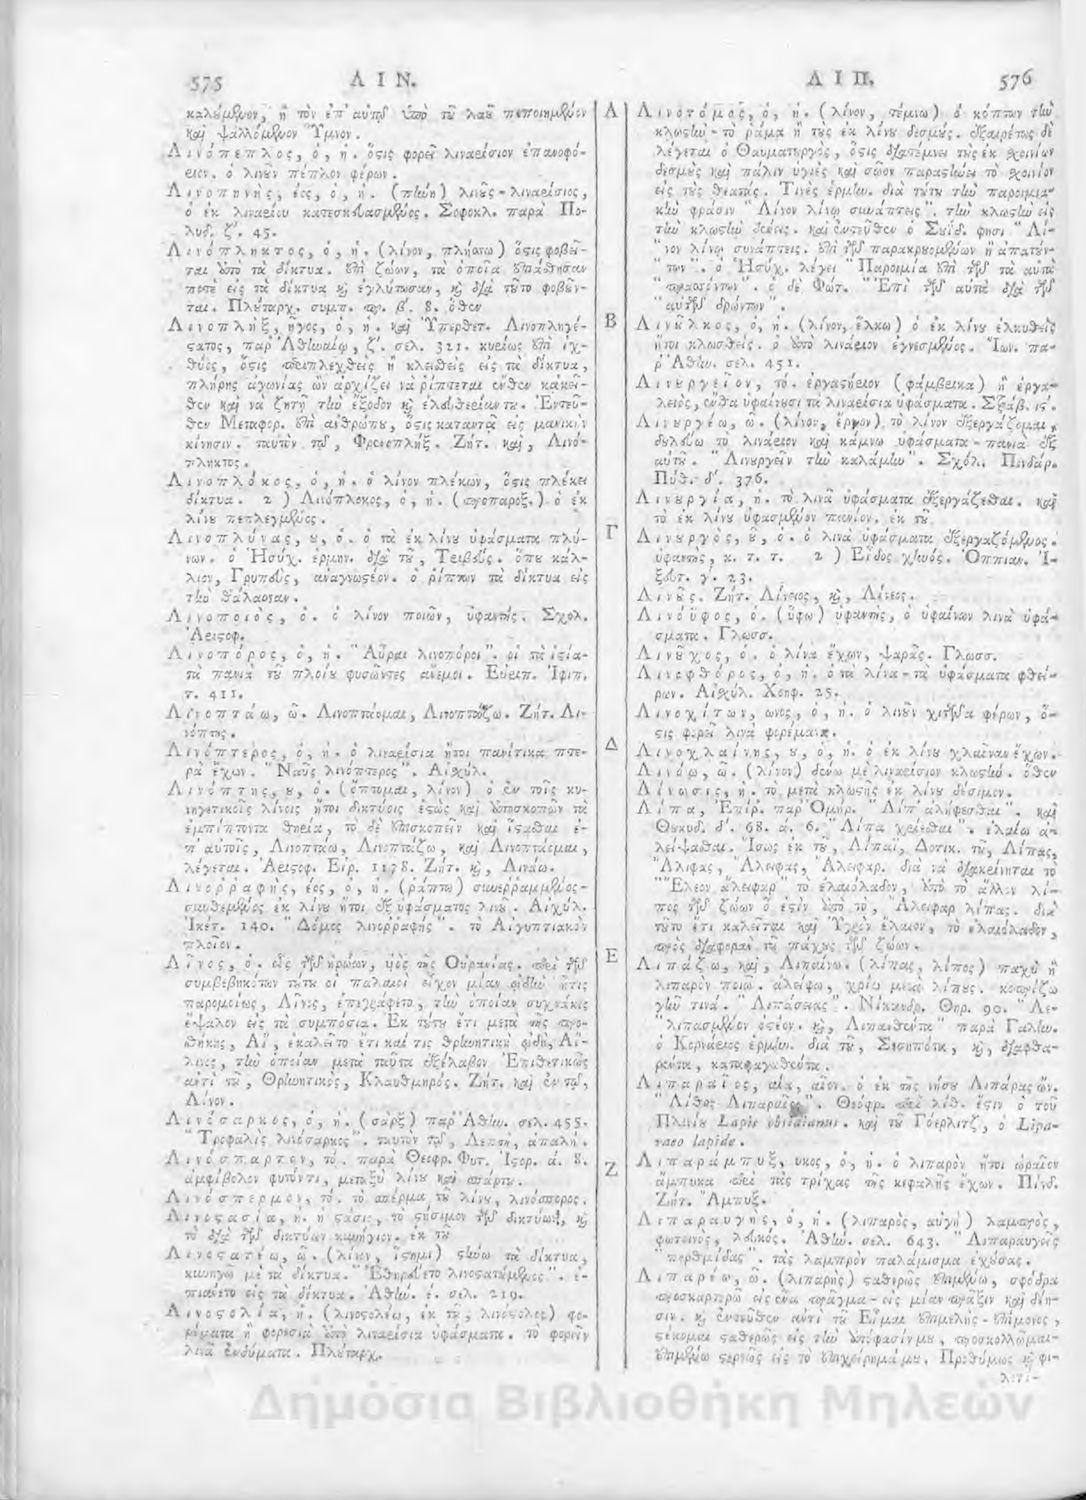 575 ΛΙΝ.
καλούμενον, ἢ τὸν ἐπ' αὐτῷ ὑπὸ τοῦ λαοῦ πεποιημένον
καὶ ψαλλόμενον Ὕμνον.
Λινόπεπλος, ὁ, ἡ. ὅστις φορεῖ λιναρίσιον ἐπανοφό-
ριον. ὁ λινοῦν πέπλον φέρων.
Λινοπηνής, έος, ὁ, ἡ. (πήνη) λινοῦς - λιναρίσιος,
ὁ ἐκ λιναρίου κατεσκευασμένος. Σοφοκλ. παρὰ Πο-
λυδ. ζ'. 45.
Λινόπληκτος, ὁ, ἡ. (λίνον, πλήσσω) ὅστις φοβεῖ-
ται ἀπὸ τὰ δίκτυα. ἐπὶ ζώων, τὰ ὁποῖα ἐπιάσθησαν
ποτὲ εἰς τὰ δίκτυα καὶ ἐγλύτωσαν, καὶ διὰ τοῦτο φοβοῦν-
ται. Πλύταρχ. συμπ. πρ. β'. 8. ὅθεν
Λινοπλήξ, ῆγος, ὁ, ἡ. καὶ Ὑπερθετ. Λινοπληγέ-
στατος, παρ' Ἀθηναίῳ, ζ'. σελ. 321. κυρίως ἐπὶ ἰχ-
θύος, ὅστις περιπλεχθεὶς ἢ κλεισθεὶς εἰς τὰ δίκτυα,
πλήρης ἀγωνίας ὢν ἀρχίζει νὰ ῥίπτεται ἔνθεν κἀκεῖ-
θεν καὶ νὰ ζητῇ τὴν ἔξοδον καὶ ἐλευθερίαν του. Ἐντεῦ-
θεν Μεταφορ. ἐπὶ ἀνθρώπου, ὅστις καταντᾷ εἰς μανικὴν
κίνησιν. ταὐτὸν τῷ, Φρενοπλήξ. Ζήτ. καὶ, Λινό-
πληκτος.
Λινοπλόκος, ὁ, ἡ. ὁ λίνον πλέκων, ὅστις πλέκει
δίκτυα. 2 ) Λινόπλοκος, ὁ, ἡ. (προπαροξ.) ὁ ἐκ
λίνου πεπλεγμένος.
Λινοπλύνας, ου, ὁ. ὁ τὰ ἐκ λίνου ὑφάσματα πλύ-
νων. ὁ Ἡσύχ. ἑρμην. διὰ τοῦ, Τριβεύς. ὅπου κάλ-
λιον, Γριπεύς, ἀναγνωστέον. ὁ ῥίπτων τὰ δίκτυα εἰς
τὴν θάλασσαν.
Λινοποιὸς, ὁ. ὁ λίνον ποιῶν, ὑφαντής. Σχολ.
Ἀριστοφ.
Λινοπόρος, ὁ, ἡ. "Αὖραι λινοπόροι". οἱ τὰ ἱστία-
τὰ πανία τοῦ πλοίου φυσῶντες ἄνεμοι. Εὐριπ. Ἰφιπ.
τ. 411.
Λινοπτάω, ῶ. Λινοπτάομαι, Λινοπτάζω. Ζήτ. Λι-
νόπτης.
Λινόπτερος, ὁ, ἡ. ὁ λιναρίσια ἤτοι πανίτικα πτε-
ρὰ ἔχων. "Ναῦς λινόπτερος". Αἰσχύλ.
Λινόπτης, ου, ὁ. (ὄπτομαι, λίνον) ὁ ἐν τοῖς κυ-
νηγετικοῖς λίνοις ἤτοι δικτύοις ἑστὼς καὶ ἀποσκοπῶν τὰ
ἐμπίπτοντα θηρία, τὸ δὲ ἐπισκοπεῖν καὶ ἵστασθαι ἐ-
π' αὐτοῖς, Λινοπτάω, Λινοπτάζω, καὶ Λινοπτάομαι,
λέγεται. Ἀριστοφ. Εἰρ. 1178. Ζήτ. καὶ, Λινάω.
Λινορραφὴς, έος, ὁ, ἡ. (ράπτω) συνερραμμένος -
συντεθειμένος ἐκ λίνου ἤτοι ἐξ ὑφάσματος λινοῦ. Αἰσχύλ.
Ἱκέτ. 140. "Δόμος λινορραφής". τὸ Αἰγυπτιακὸν
πλοῖον.
Λῖνος, ὁ. εἷς τῶν ἡρώων, υἱὸς τῆς Οὐρανίας. περὶ τῶν
συμβεβηκότων τούτου οἱ παλαιοὶ εἶχον μίαν ᾠδὴν ἥτις
παρομοίως, Λῖνος, ἐπεγράφετο, τὴν ὁποίαν συχνάκις
ἔψαλον εἰς τὰ συμπόσια. Ἐκ τούτου ἔτι μετὰ τῆς προσ-
θήκης, Αἲ, ἐκαλεῖτο ἔτι καί τις θρηνητικὴ ᾠδὴ, Αἴ-
λινος, τὴν ὁποίαν μετὰ ταῦτα ἐξέλαβον Ἐπιθετικῶς
ἀντὶ τοῦ, Θρηνητικὸς, Κλαυθμηρός. Ζήτ. καὶ ἐν τῷ,
Λίνον.
Λινόσαρκος, ὁ, ἡ. (σάρξ) παρ' Ἀθην. σελ. 455.
"Τροφαλὶς λινόσαρκος". ταυτὸν τῷ, Λεπτὴ, ἁπαλή.
Λινόσπαρτον, τό. παρὰ Θεοφρ. Φυτ. Ἱστορ. ά. 8.
ἀμφίβολον φυτόν τι, μεταξὺ λίνου καὶ σπάρτου.
Λινόσπερμον, τό. τὸ σπέρμα τοῦ λίνου, λινόσπορος.
Λινοστασία, ἡ. ἡ στάσις, τὸ στήσιμον τῶν δικτύων, καὶ
τὸ διὰ τῶν δικτύων κυνήγιον. ἐκ τοῦ
Λινοστατέω, ῶ. (λίνον, ἵστημι) στήνω τὰ δίκτυα,
κυνηγῶ μὲ τὰ δίκτυα. "Ἐθηρεύετο λινοστατούμενος". ἐ-
πιάνετο εἰς τὰ δίκτυα. Ἀθήν. έ. σελ. 219.
Λινοστολία, ἡ. (λινοστολέω, ἐκ τοῦ, λινόστολος) φο-
ρέματα ἢ φορεσία ἀπὸ λιναρίσια ὑφάσματα. τὸ φορεῖν
λινᾶ ἐνδύματα. Πλούταρχ.
Α
Β
Γ
Δ
Ε
Ζ
ΛΙΠ. 576
Λινοτόμος, ὁ, ἡ. (λίνον, τέμνω) ὁ κόπτων τὴν
κλωστὴν - τὸ ράμα ἢ τοὺς ἐκ λίνου δεσμούς. ἐξαιρέτως δὲ
λέγεται ὁ Θαυματουργὸς, ὅστις διατέμνει τοὺς ἐκ σχοινίων
δεσμοὺς καὶ πάλιν ὑγιὲς καὶ σῶον παραστήνει τὸ σχοινίον
εἰς τοὺς θεατάς. Τινὲς ἑρμην. διὰ τούτου τὴν παροιμια-
κὴν φράσιν "Λίνον λίνῳ συνάπτεις". τὴν κλωστὴν εἰς
τὴν κλωστὴν δένεις. καὶ ἐντεῦθεν ὁ Σουΐδ. φησι "Λί-
"νον λίνῳ συνάπτεις. ἐπὶ τῶν παρακρουομένων ἢ ἀπατών-
"των". ὁ Ἡσύχ. λέγει "Παροιμία ἐπὶ τῶν τὰ αὐτὰ
"πραττόντων". ὁ δὲ Φώτ. "Ἐπὶ τῶν αὐτὰ διὰ τῶν
"αὐτῶν δρώντων".
Λινοῦλκος, ὁ, ἡ. (λίνον, ἕλκω) ὁ ἐκ λίνου ἑλκυσθεὶς
ἤτοι κλωσθείς. ὁ ἀπὸ λινάριον ἐγνεσμένος. Ἴων. πα-
ρ' Ἀθην. σελ. 451.
Λινουργεῖον, τό. ἐργαστήριον (φάμβρικα) ἢ ἐργα-
λειὸς, ἔνθα ὑφαίνουσι τὰ λιναρίσια ὑφάσματα. Στράβ. ις'.
Λινουργέω, ῶ. (λίνον, ἔργον) τὸ λίνον ἐξεργάζομαι,
δουλεύω τὸ λινάριον καὶ κάμνω ὑφάσματα - πανιὰ ἐξ
αὐτοῦ. "Λινουργεῖν τὴν καλάμην". Σχόλ. Πινδάρ.
Πύθ. δ'. 376.
Λινουργία, ἡ. τὸ λινᾶ ὑφάσματα ἐξεργάζεσθαι. καὶ
τὸ ἐκ λίνου ὑφασμένον πανίον. ἐκ τοῦ
Λινουργὸς, οῦ, ὁ. ὁ λινᾶ ὑφάσματα ἐξεργαζόμενος.
ὑφαντὴς, κ. τ. τ. 2 ) Εἶδος χηνός. Ὀππιαν. Ἰ-
ξευτ. γ'. 23.
Λινοῦς. Ζήτ. Λίνειος, καὶ, Λίνεος.
Λινόϋφος, ὁ. (ὕφω) ὑφαντὴς, ὁ ὑφαίνων λινᾶ ὑφά-
σματα. Γλωσσ.
Λινοῦχος, ὁ. ὁ λίνα ἔχων, ψαρᾶς. Γλωσσ.
Λινοφθόρος, ὁ, ἡ. ὁ τὰ λίνα - τὰ ὑφάσματα φθεί-
ρων. Αἰσχύλ. Χοηφ. 25.
Λινοχίτων, ωνος, ὁ, ἡ. ὁ λινοῦν χιτῶνα φέρων, ὅ-
στις φορεῖ λινᾶ φορέματα.
Λινοχλαίνης, ου, ὁ, ἡ. ὁ ἐκ λίνου χλαῖναν ἔχων.
Λινόω, ῶ. (λίνον) δένω μὲ λιναρίσιον κλωστήν. ὅθεν
Λίνωσις, ἡ. τὸ μετὰ κλωστῆς ἐκ λίνου δέσιμον.
Λίπα, Ἐπίρ. παρ' Ὁμήρ. "Λίπ' ἀλήψεσθαι". καὶ
Θουκυδ. δ'. 68. ά. 6. "Λίπα χρίεσθαι". ἐλαίῳ ἀ-
λείψασθαι. Ἴσως ἐκ τοῦ, Λίπαϊ, Δοτικ. τοῦ, Λίπας,
Ἄλιφας, Ἄλειφας, Ἄλειφαρ. διὰ νὰ διακρίνηται τὸ
"Ἔλεον ἄλειφαρ" τὸ ἐλαιόλαδον, ἀπὸ τὸ ἄλλον λί-
πος τῶν ζώων ὅ ἐστιν ἀπὸ τὸ, Ἄλειφαρ λίπας. διὰ
τοῦτο ἔτι καλεῖται καὶ Ὑγρὸν ἔλαιον, τὸ ἐλαιόλαδον,
πρὸς διαφορὰν τοῦ πάχους τῶν ζώων.
Λιπάζω, καὶ, Λιπαίνω. (λίπας, λίπος) παχὺ ἢ
λιπαρὸν ποιῶ. ἀλείφω, χρίω μετὰ λίπους. κοπρίζω
γῆν τινά. "Λιπάσειας". Νίκανδρ. Θηρ. 90. "Λε-
"λιπασμένον ὀστέον. καὶ, Λιπανθέντα" παρὰ Γαλην.
ὁ Κορνάριος ἑρμην. διὰ τοῦ, Σεσηπότα, καὶ, διαφθα-
ρέντα, καταφαγωθέντα.
Λιπαραῖος, αία, αῖον. ὁ ἐκ τῆς νήσου Λιπάρας ὤν.
"Λίθος Λιπαραῖος". Θεόφρ. περὶ λίθ. ἐστιν ὁ τοῦ
Πλινίου Lapis obsidianus. καὶ τοῦ Γόερλιτζ, ὁ Lipa-
raeo lapide.
Λιπαράμπυξ, υκος, ὁ, ἡ. ὁ λιπαρὸν ἤτοι ὡραῖον
ἄμπυκα περὶ τὰς τρίχας τῆς κεφαλῆς ἔχων. Πίνδ.
Ζήτ. Ἄμπυξ.
Λιπαραυγὴς, ὁ, ἡ. (λιπαρὸς, αὐγὴ) λαμπρὸς,
φωτεινὸς, λευκός. Ἀθην. σελ. 643. "Λιπαραυγεῖς
"πορθμίδας". τὰς λαμπρὸν παλάμισμα ἐχούσας.
Λιπαρέω, ῶ. (λιπαρὴς) σταθερῶς ἐπιμένω, σφόδρα
προσκαρτερῶ εἰς ἕνα πρᾶγμα - εἰς μίαν πρᾶξιν καὶ δέη-
σιν. καὶ ἐντεῦθεν ἀντὶ τοῦ Εἶμαι ἐπιμελὴς - ἐπίμονος,
στέκομαι σταθερῶς εἰς τὴν ἀπόφασίν μου, προσκολλῶμαι-
ἐπιμένω στερεῶς εἰς τὸ ἐπιχείρημά μου. Προθύμως καὶ φι-
λοτι-
Δημόσια Βιβλιοθήκη Μηλεών